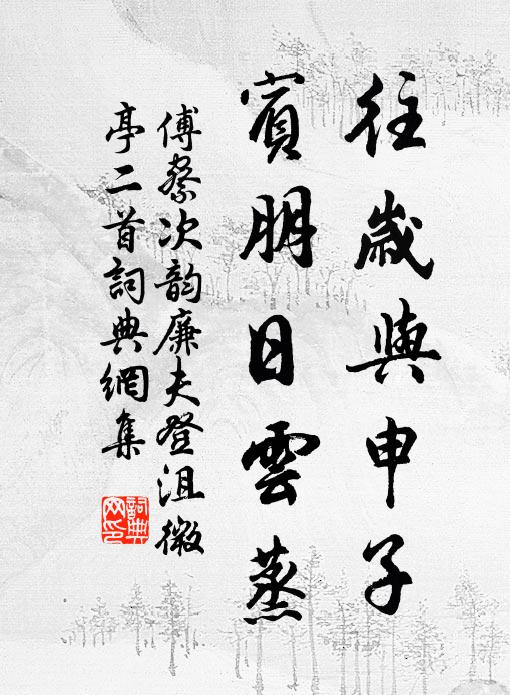 往歲與申子
賓朋日雲蒸
傅察次韵廉夫登沮微
亭二首詞典網集
詞典网印